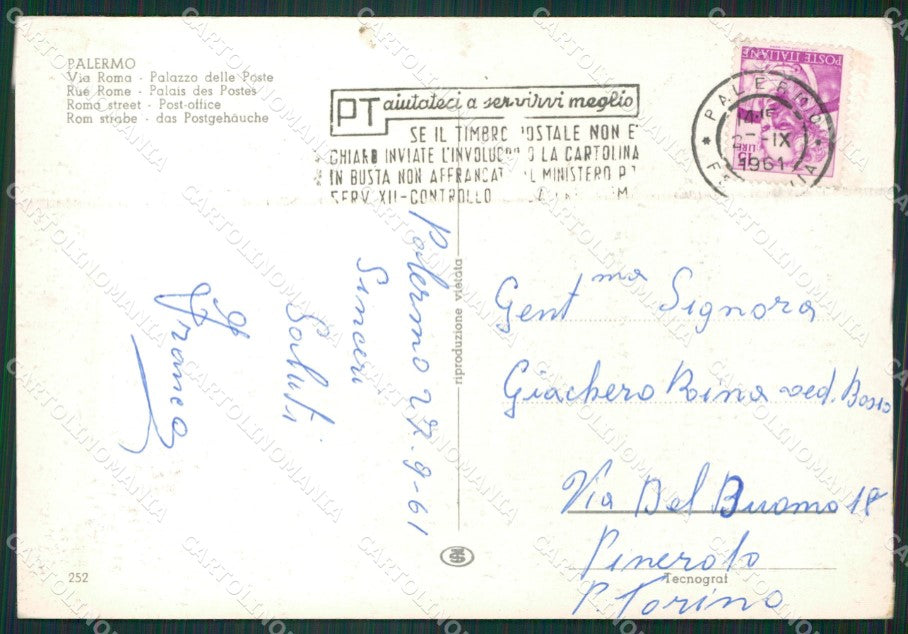 PALERMO
Via Roma - Palazzo delle Poste
Rue Rome - Palais des Postes
Roma street - Post-office
Rom strabe - das Postgehäuche
PT aiutateci a servirvi meglio
SE IL TIMBRO POSTALE NON E'
CHIARO INVIATE L'INVOLUCRO O LA CARTOLINA
IN BUSTA NON AFFRANCATA AL MINISTERO P T
SERV XII-CONTROLLO
POSTE ITALIANE
LIRE 15
PALERMO
FERROVIA
14
-IX
1961
Palermo 27-9-61
Sinceri
Saluti
Franca
riproduzione vietata
Gent ma Signora
Giachero Rina ved. Bosio
Via Del Duomo 18
Pinerolo
P. Torino
252
Tecnograf
CARTOLINOMANIA